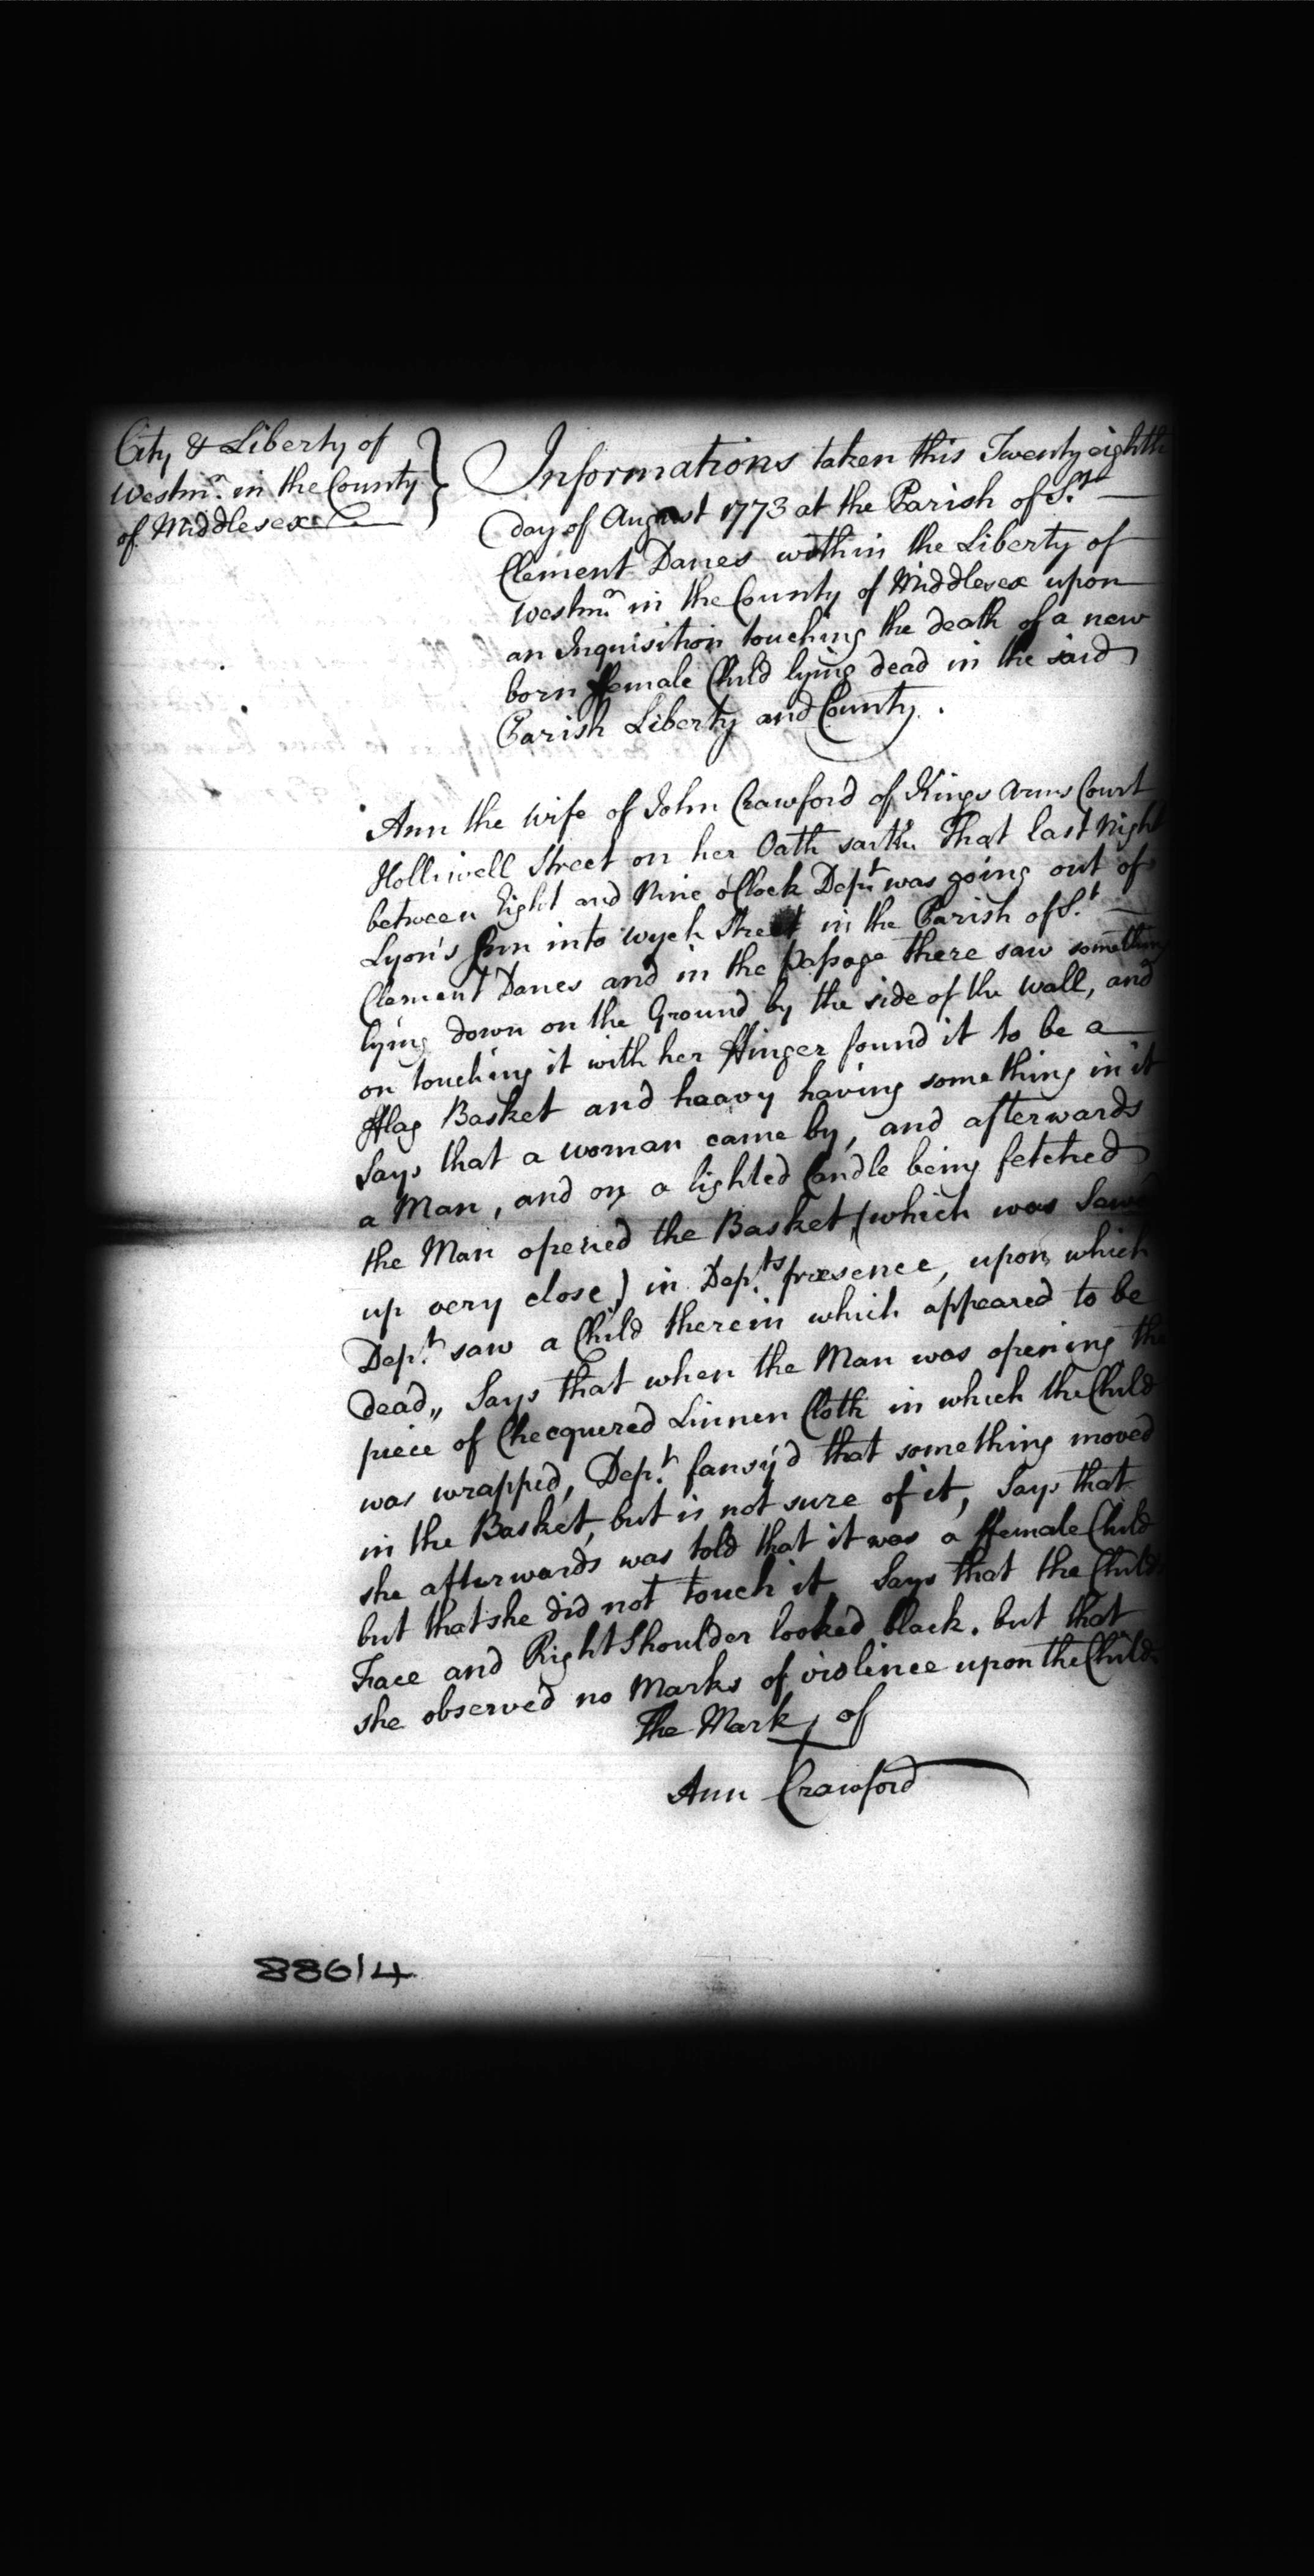 City & Liberty of
Westmr. in the County
of Middlesex
Informations taken this Twenty eighth
day of August 1773 at the Parish of St.
Clement Danes within the Liberty of
Westmr. in the County of Middlesex upon
an Inquisition touching the death of a new
born ffemale Child lying dead in the said
Parish Liberty and County.
Ann the Wife of John Crawford of Kings Arms Court
Holliwell Street on her Oath saith That last Night
between Eight and Nine o'Clock Dept. was going out of
Lyon's Inn into Wych Street in the Parish of St.
Clement Danes and in the Passage there saw something
lying down on the Ground by the side of the Wall, and
on touching it with her ffinger found it to be a
fflag Basket and heavy having something in it
Says that a woman came by, and afterwards
a Man, and on a lighted Candle being fetched
the Man opened the Basket (which was Sewed
up very close) in Dep.ts presence, upon which
Dep.t saw a Child therein which appeared to be
dead,, Says that when the Man was opening the
piece of Checquered Linnen Cloth in which the Child
was wrapped, Dep.t fansy'd that something moved
in the Basket, but is not sure of it, Says that
she afterwards was told that it was a ffemale Child
but that she did not touch it, Says that the Childs
Face and Right Shoulder looked black, but that
she observed no Marks of violence upon the Child.
The Mark of
Ann Crawford
88614